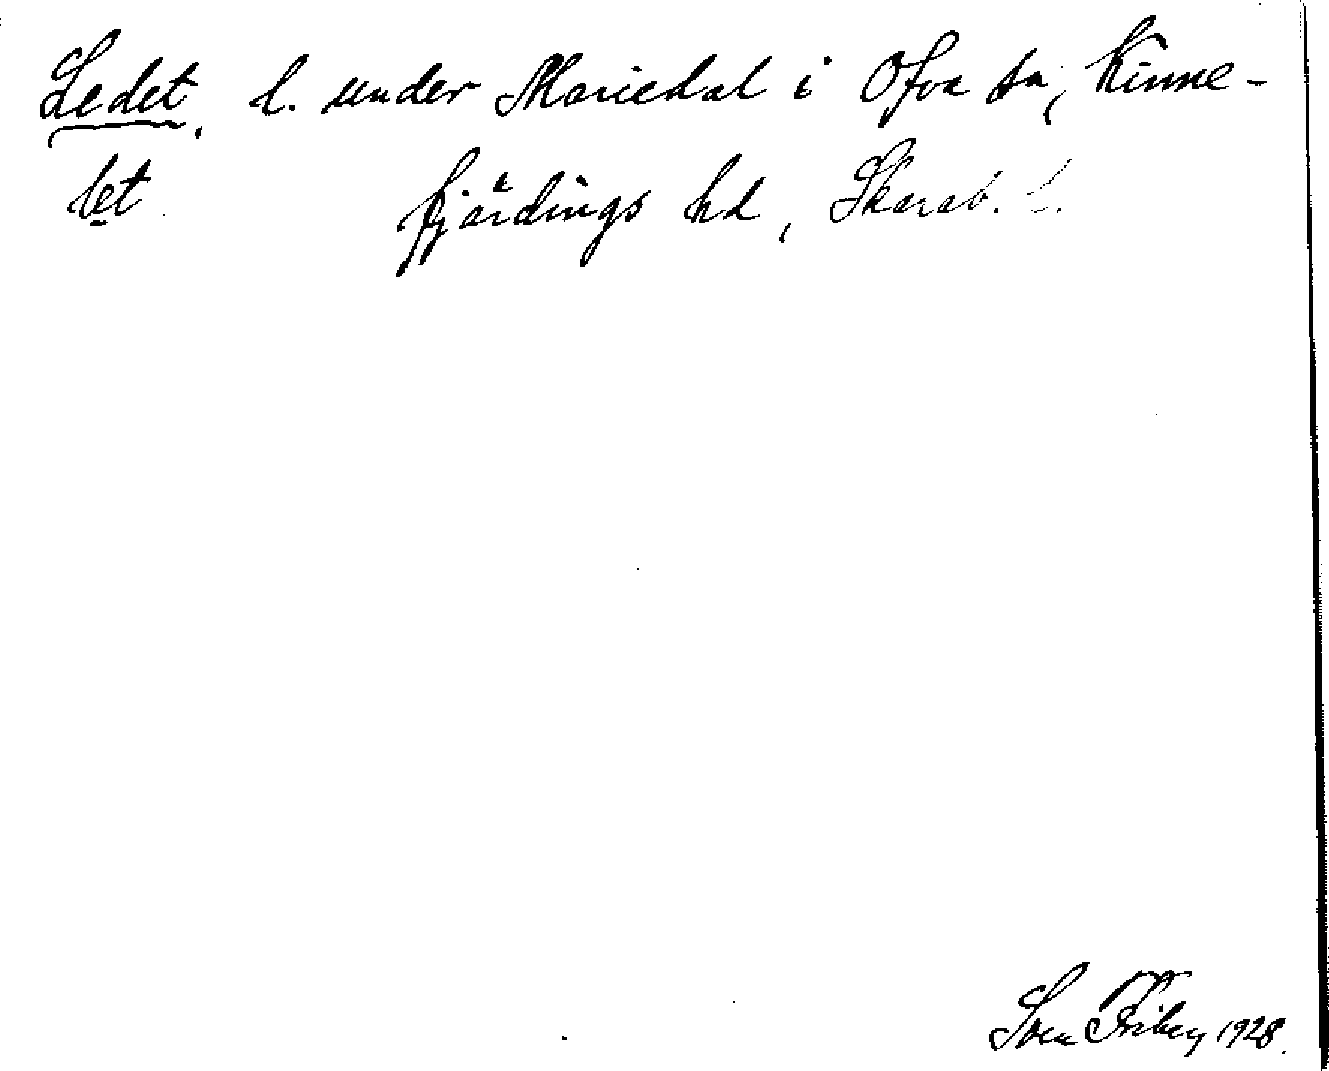 Ledet, l. under Mariedal i Ofva sn, Kinne-
let fjärdings hd, Skarab. l.
Sven Friberg 1928.